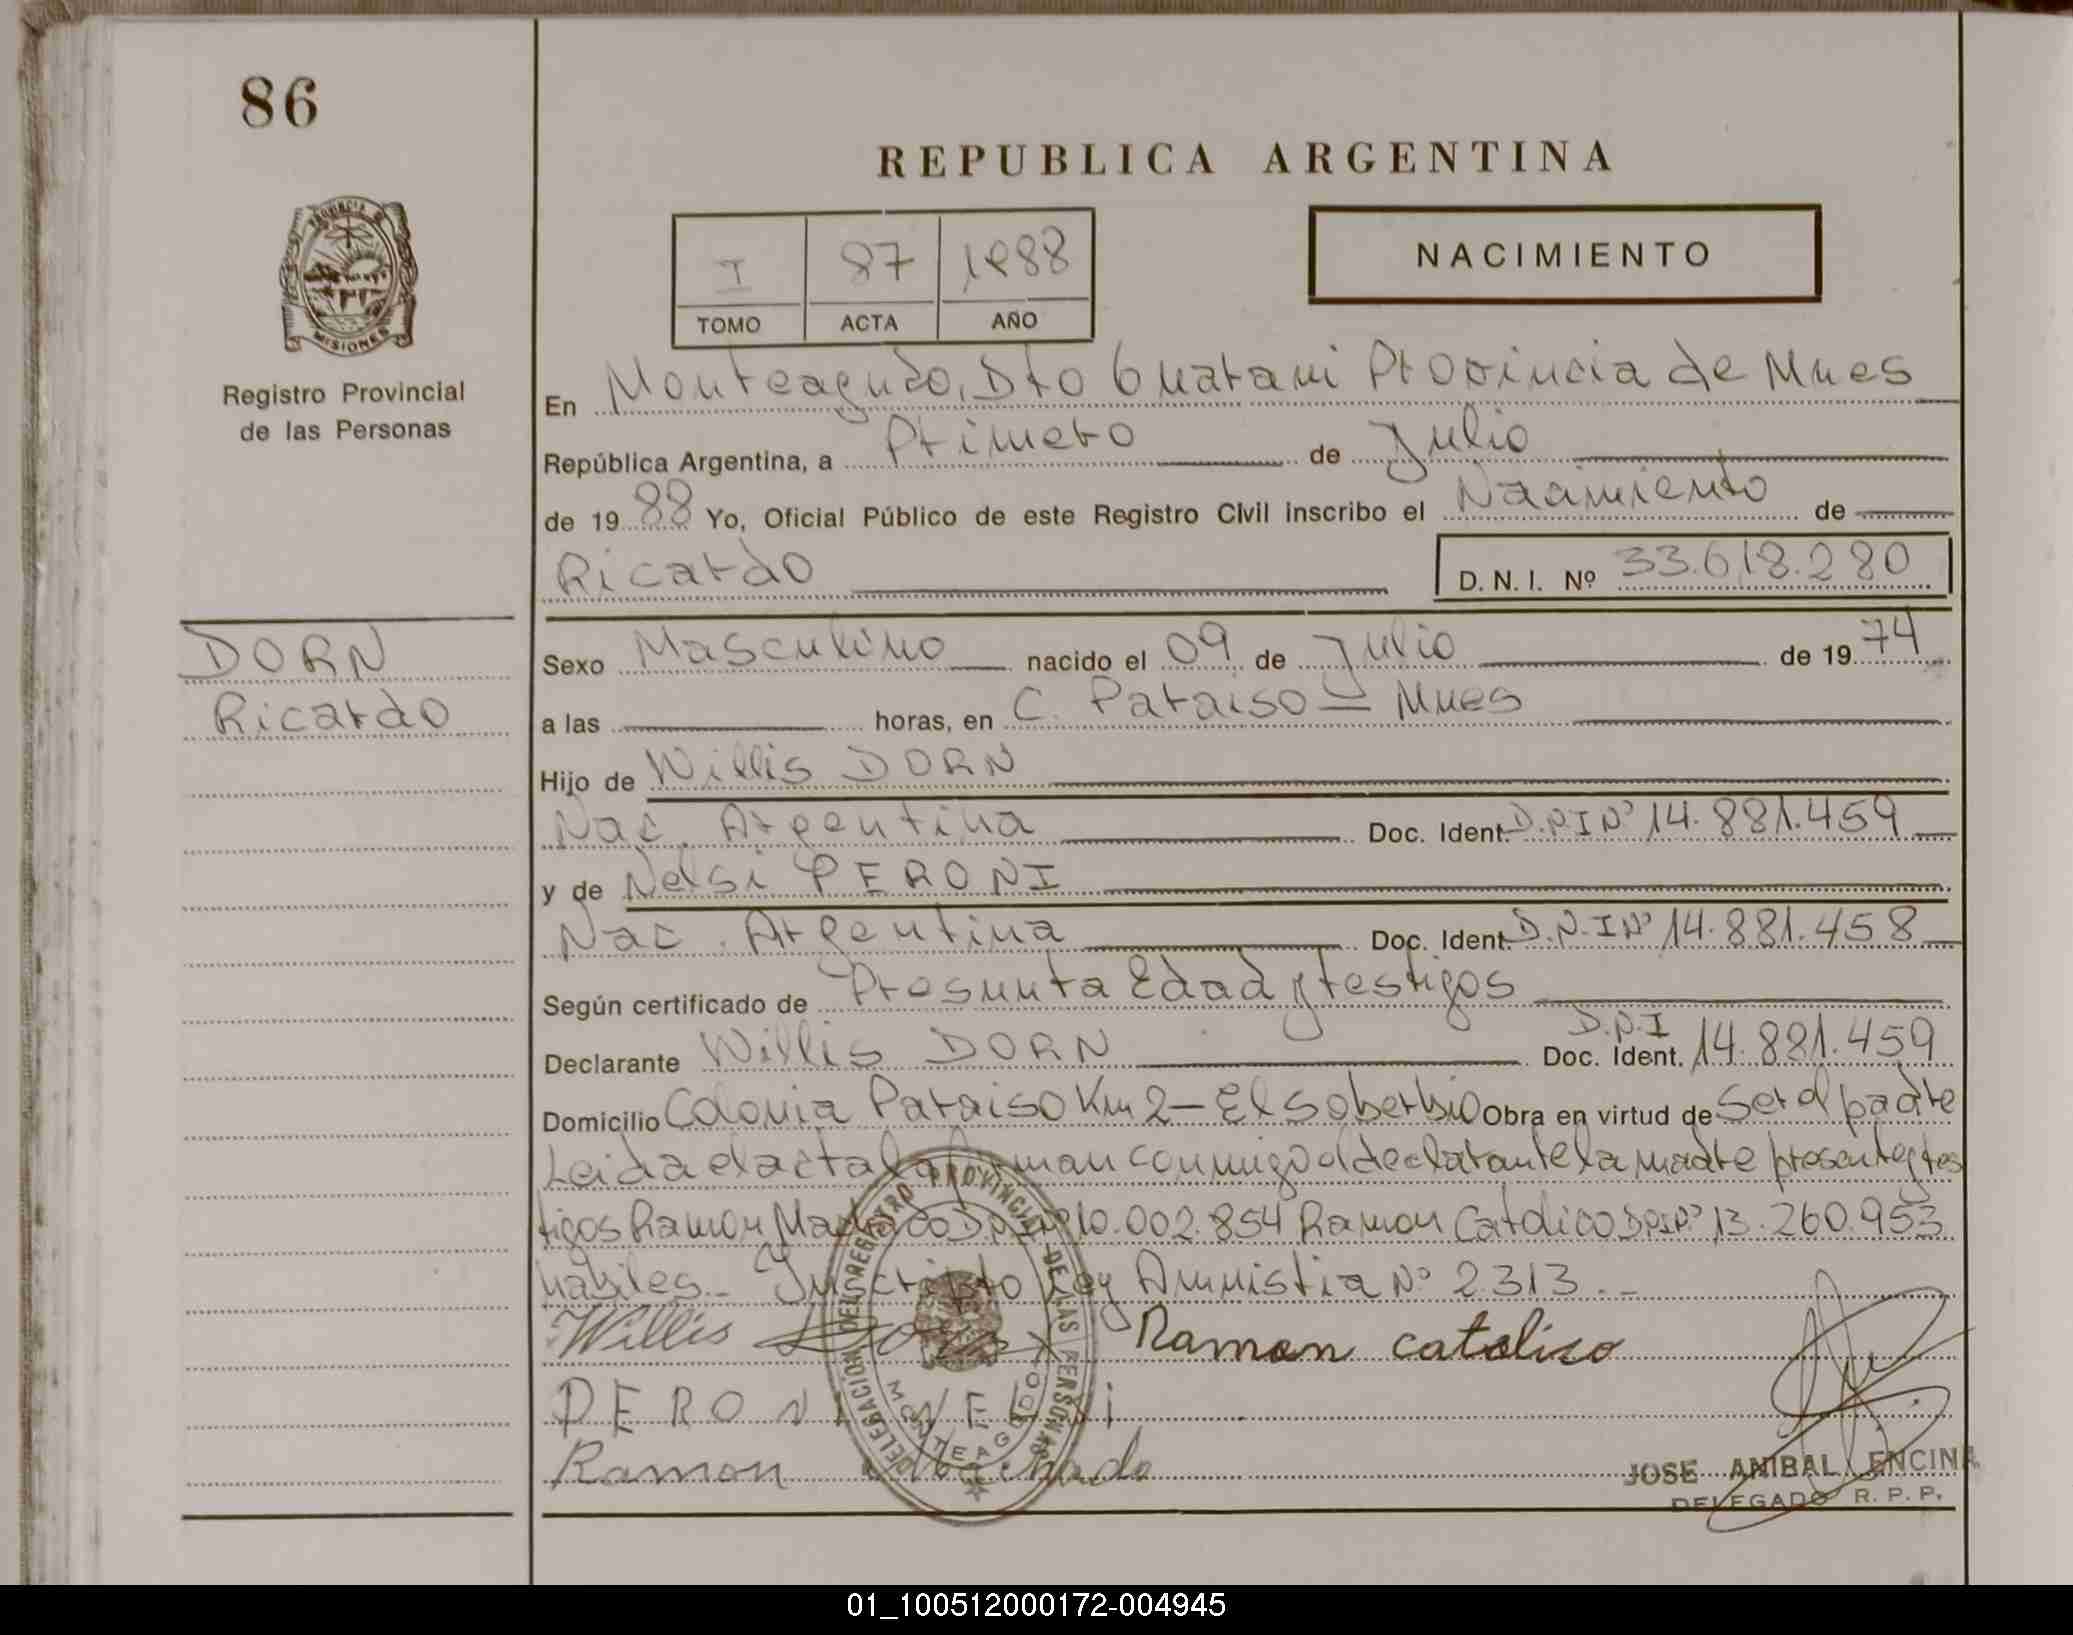 86
REPUBLICA ARGENTINA
PROVINCIA DE
MISIONES
Registro Provincial
de las Personas
I 87 1988
TOMO ACTA AÑO
NACIMIENTO
En Monteagudo, Dto Guarani Provincia de Mnes
República Argentina, a Primero de Julio
de 19 88 Yo, Oficial Público de este Registro Civil inscribo el Nacimiento de
Ricardo D. N. I. Nº 33.618.280
DORN
Ricardo
Sexo Masculino nacido el 09 de Julio de 19 74
a las horas, en C. Paraiso - Mnes
Hijo de Willis DORN
Nac. Argentina Doc. Ident. D.N.I Nº 14.881.459
y de Nelsi PERONI
Nac. Argentina Doc. Ident. D.N.I Nº 14.881.458
Según certificado de Presunta Edad y testigos
Declarante Willis DORN Doc. Ident. D.N.I 14.881.459
Domicilio Colonia Paraiso Km 2 - El Soberbio Obra en virtud de Ser el padre
Leida el acta la firman conmigo el declarante la madre presente y tes
tigos Ramon Machado D.N.I Nº 10.002.854 Ramon Catolico D.N.I Nº 13.260.953
habiles.- Inscripto Ley Amnistia Nº 2313.-
Willis Dorn Ramon catolico
PERONI NELSI
Ramon Machado
DELEGACION DEL REGISTRO PROVINCIAL DE LAS PERSONAS
MONTEAGUDO
JOSE ANIBAL ENCINA
DELEGADO R. P. P.
01_100512000172-004945